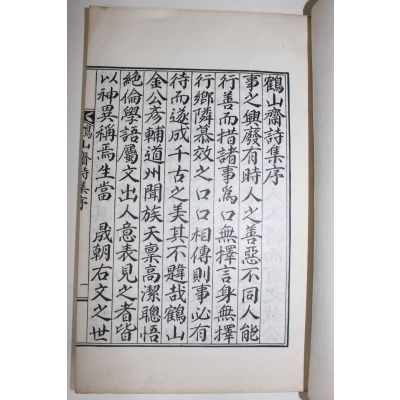 鶴山齋詩集序
事之興廢有時人之善惡不同人能
行善而措諸事爲口無擇言身無擇
行鄕隣慕效之口口相傳則事必有
待而遂成千古之美其不韙哉鶴山
金公彦輔道州聞族天稟高潔聰悟
絶倫學語屬文出人意表見之者皆
以神異稱焉生當 晟朝右文之世
鶴山齋詩集序
一